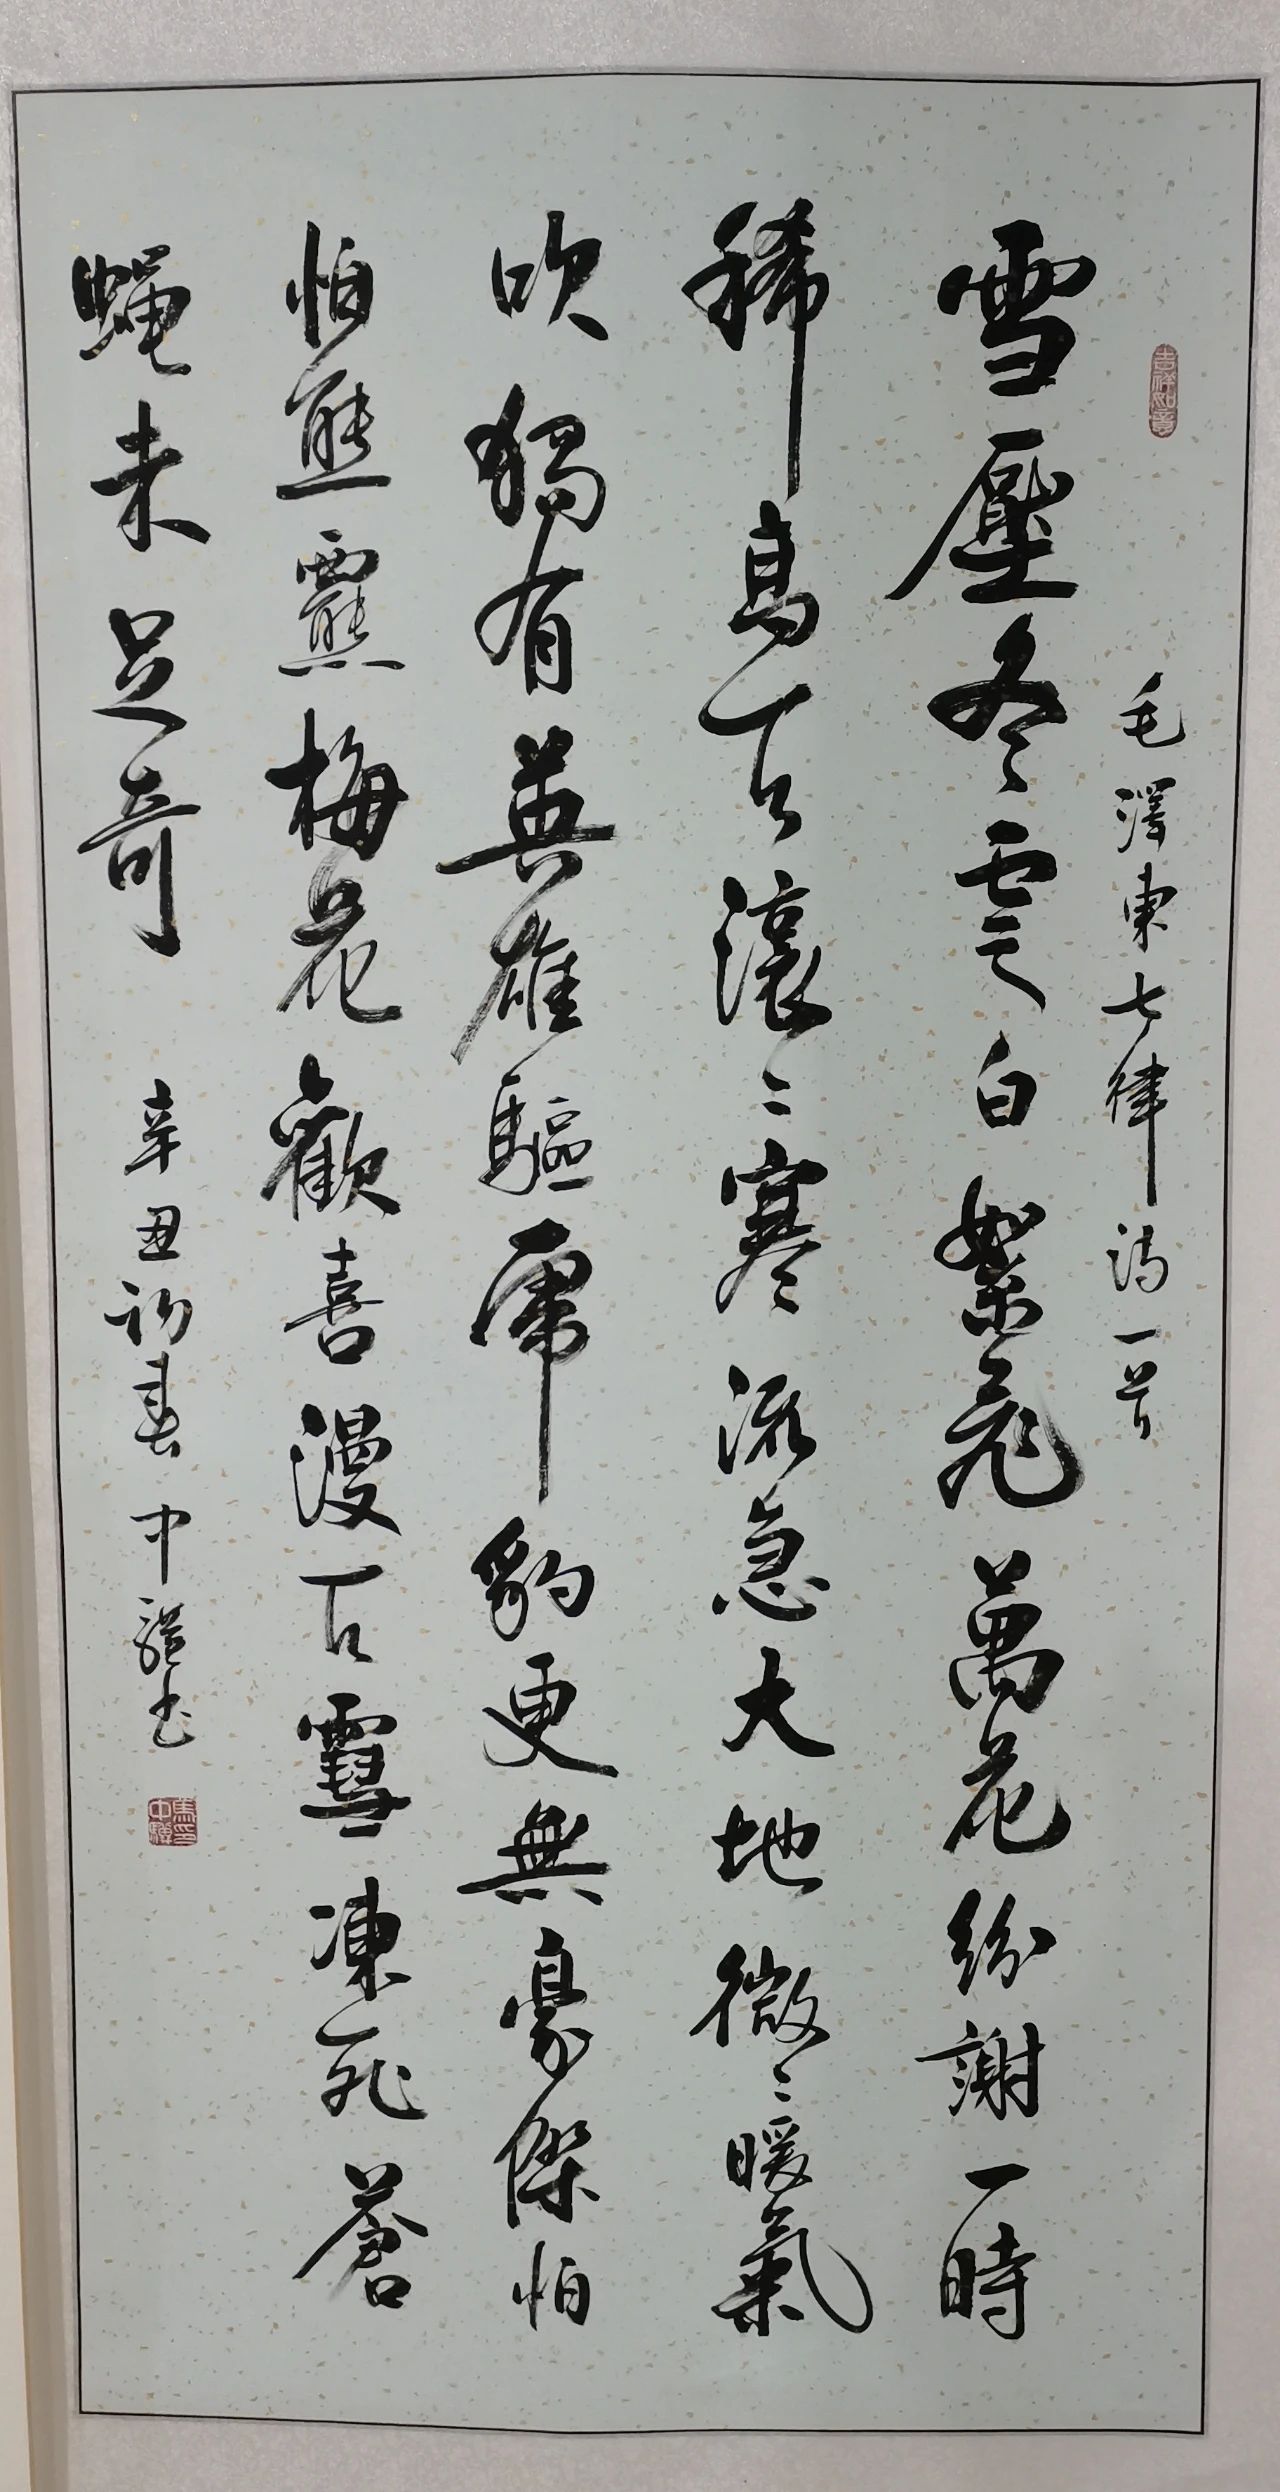 吉祥如意
毛澤東七律詩一首
雪壓冬雲白絮飛萬花紛謝一時
稀高天滾〻寒流急大地微〻暖氣
吹獨有英雄驅虎豹更無豪傑怕
怕熊羆梅花歡喜漫天雪凍死蒼
蝇未足奇 辛丑初春中驥书